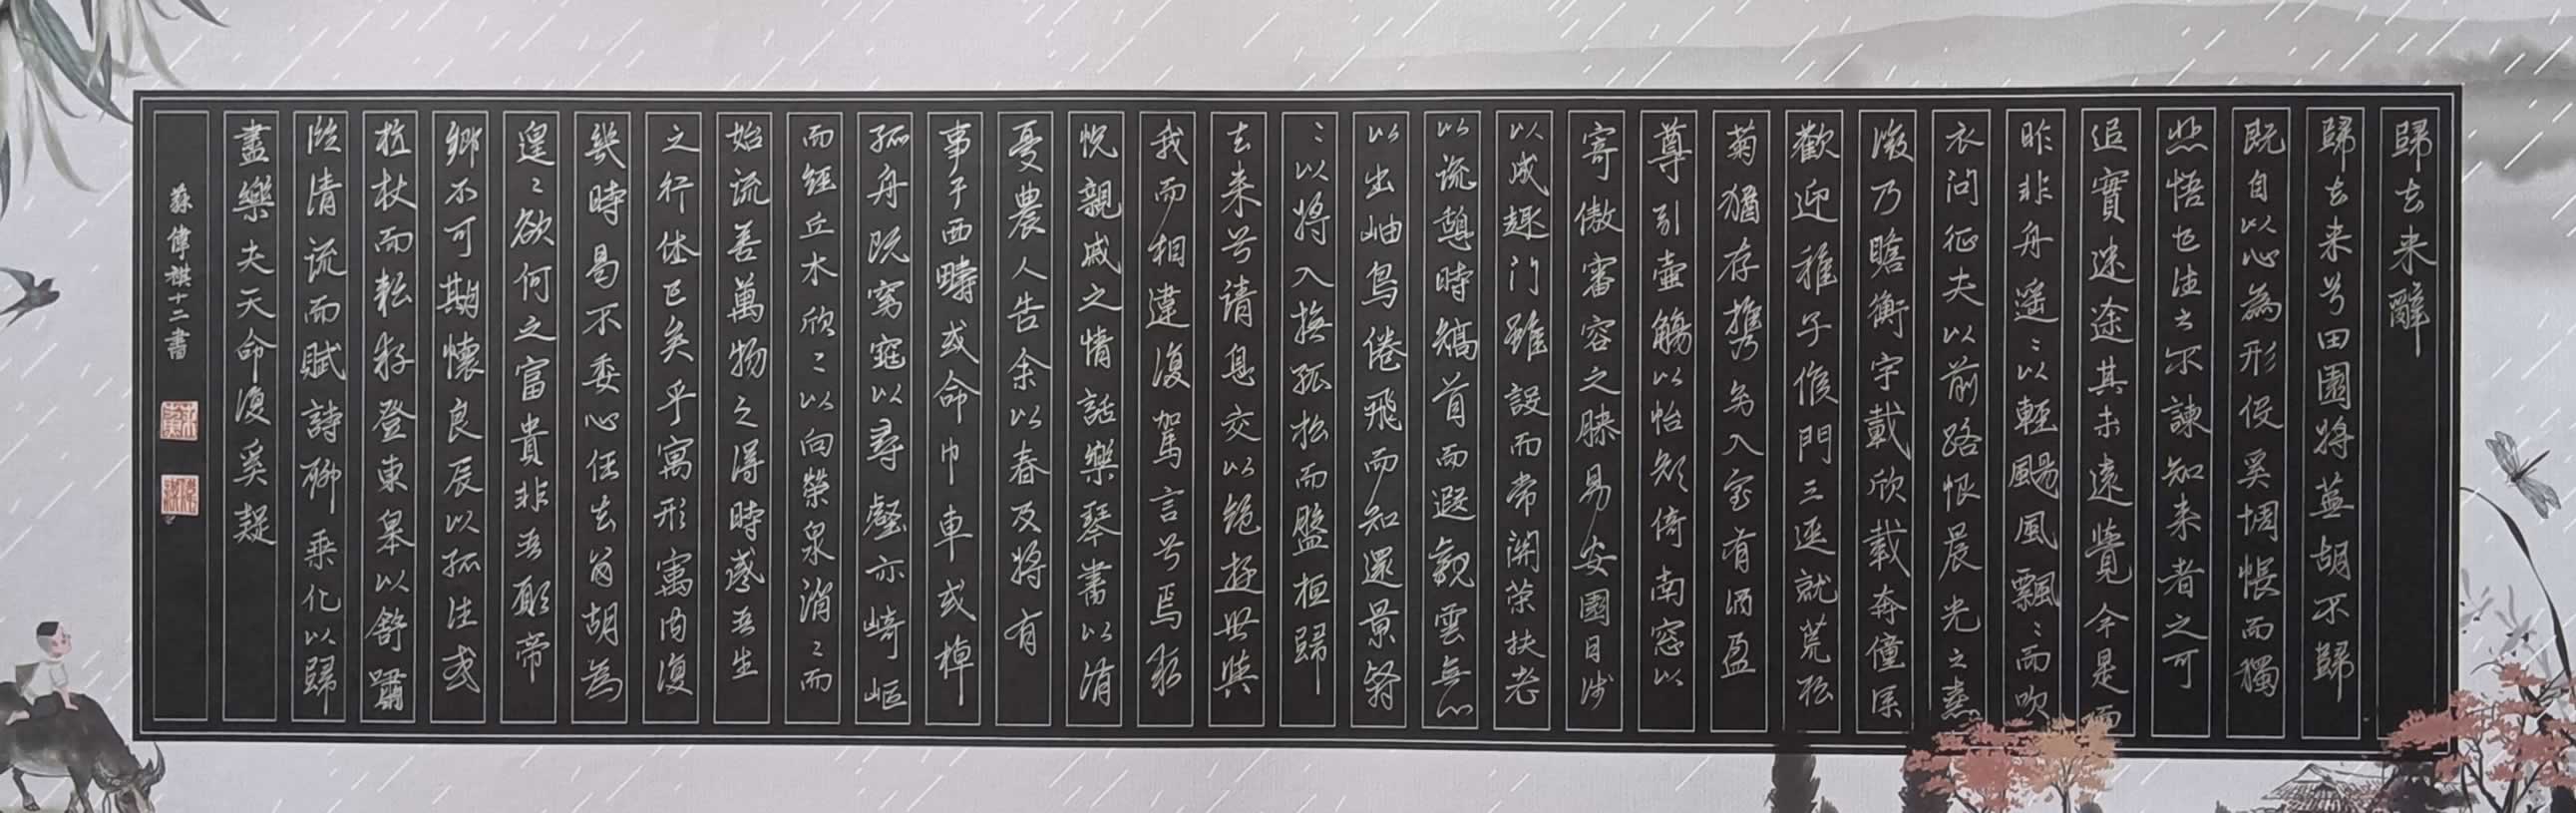 歸去来辭
歸去来兮田園將蕪胡不歸
既自以心為形役奚惆悵而獨
悲悟已往之不諫知来者之可
追實迷途其未遠覺今是而
昨非舟遥〻以輕颺風飄〻而吹
衣问征夫以前路恨晨光之熹
微乃瞻衡宇載欣載奔僮僕
歡迎稚子候門三逕就荒松
菊猶存携幼入室有酒盈
尊引壷觴以怡顔倚南窓以
寄傲審容之膝易安園日涉
以成趣门雖設而常関策扶老
以流憩時矯首而遐觀雲無心
以出岫鳥倦飛而知還景翳
〻以将入撫孤松而盤桓歸
去来兮请息交以绝遊世與
我而相違復駕言兮焉求
悦親戚之情話樂琴書以消
憂農人告余以春及将有
事于西疇或命巾車或棹
孤舟既窈窕以尋壑亦崎嶇
而経丘木欣〻以向榮泉涓〻而
始流善萬物之得時感吾生
之行休已矣乎寓形寓内復
幾時曷不委心任去留胡為
遑〻欲何之富貴非吾願帝
鄉不可期懷良辰以孤往或
植杖而耘耔登東皋以舒嘯
臨清流而賦詩聊乘化以歸
盡樂夫天命復奚疑
蘇偉棋十二書